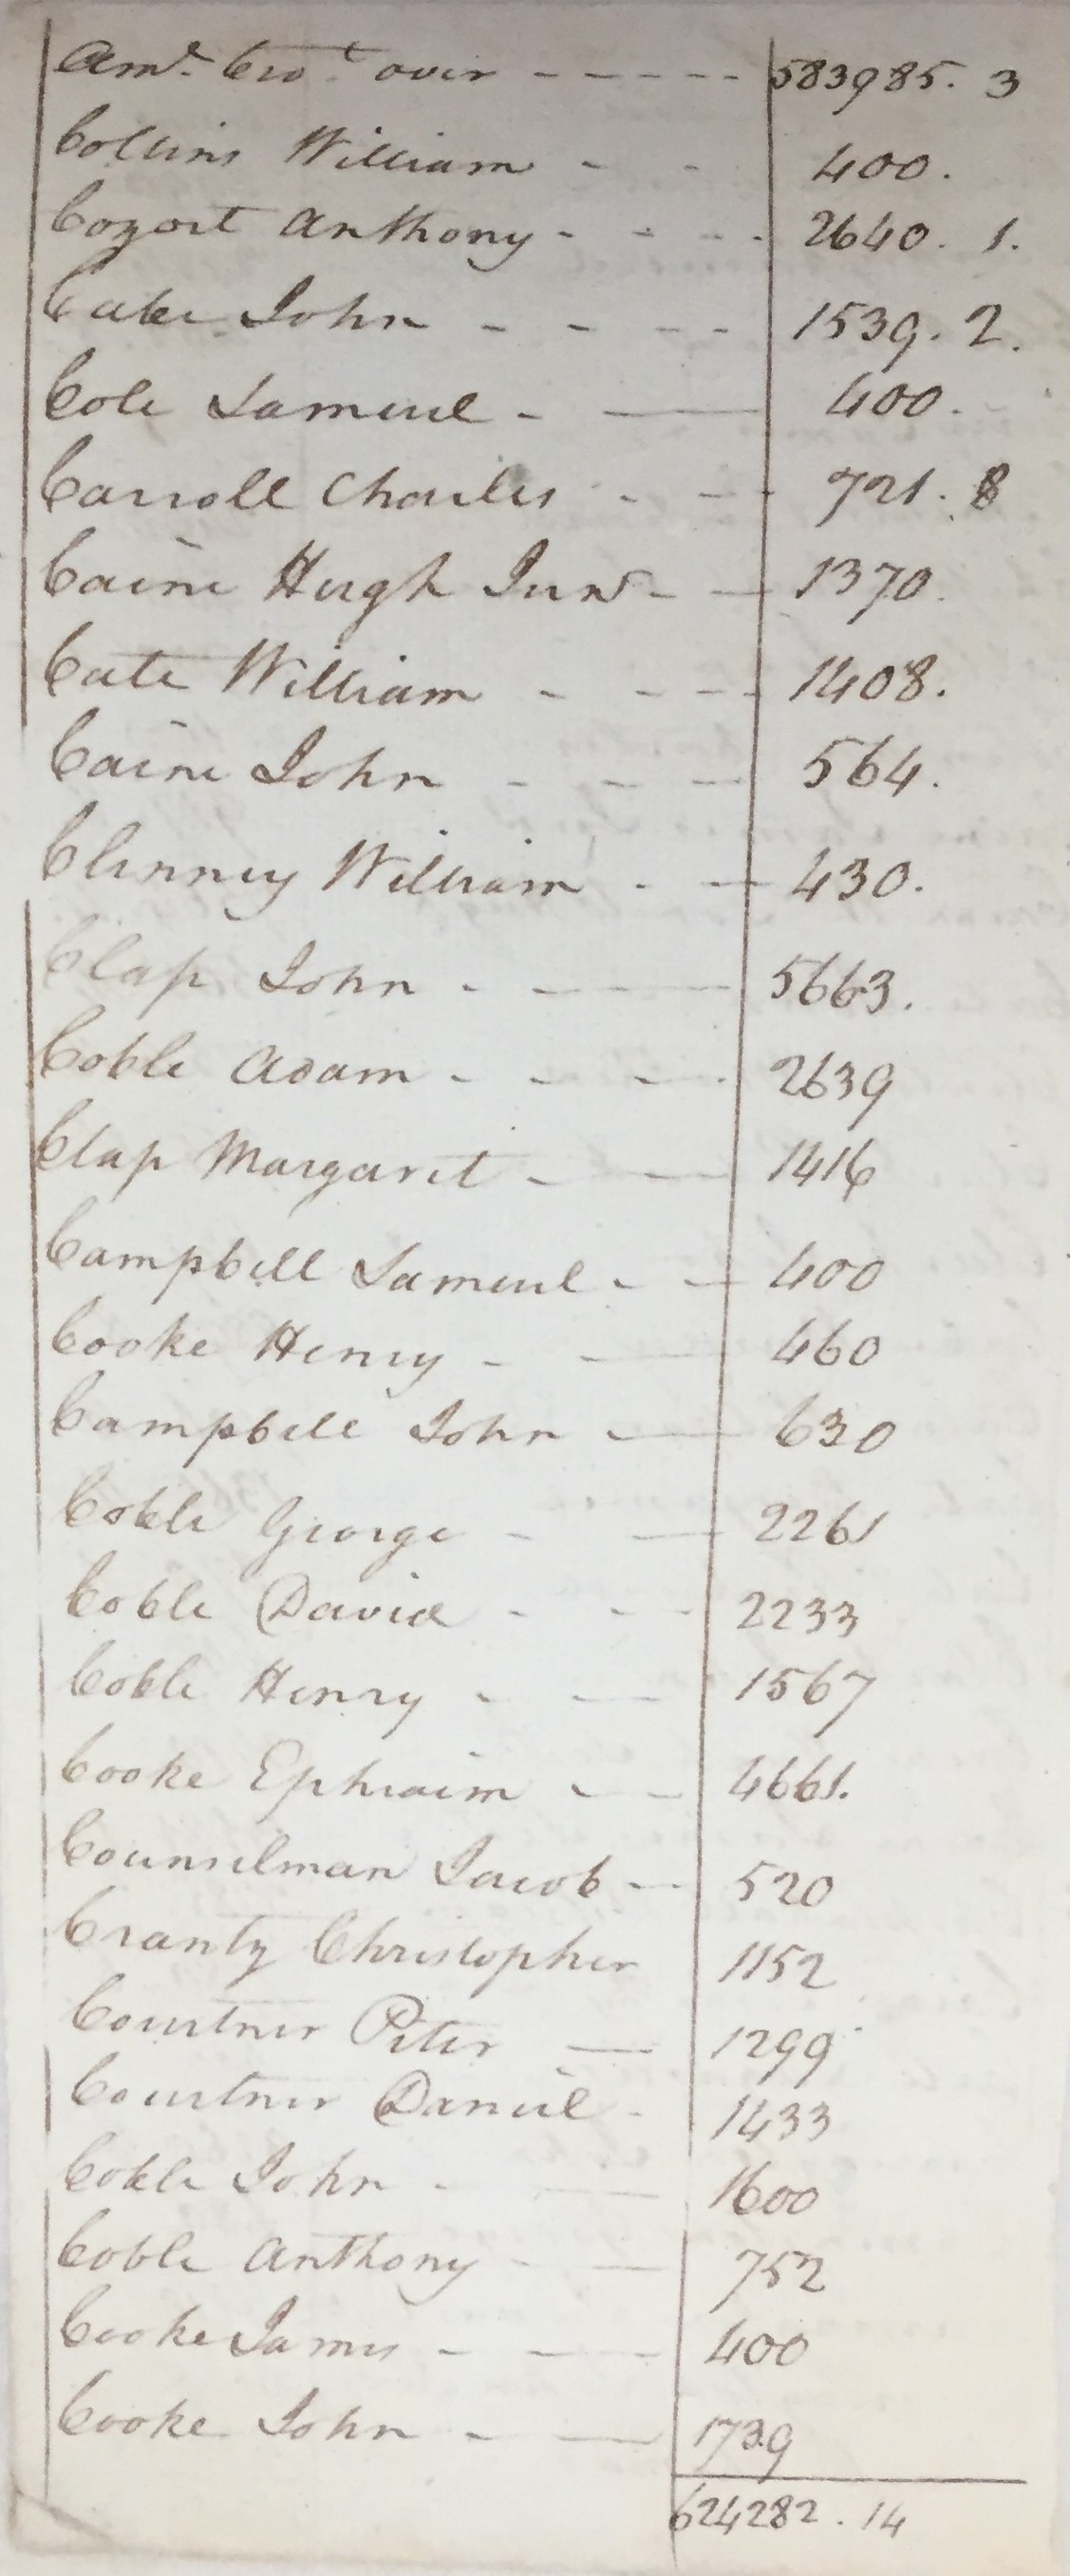 Amt. Brot. over - - - - - 583985. 3
Collins William - - 400.
Cozort Anthony - - - 2640. 1.
Cate John - - - - 1539. 2.
Cole Samuel - — 400.
Carroll Charles - - - 721. 8
Caine Hugh Junr - - 1370.
Cate William - - - - 1408.
Caine John - - - 564.
Clenney William - - 430.
Clap John - - — 5663.
Coble Adam - - - - 2639
Clap Margaret - — 1416
Campbell Samuel - - 400
Cooke Henry - — 460
Campbell John - — 630
Coble George - — 2261
Coble David - - - 2233
Coble Henry - — 1567
Cooke Ephraim - — 4661.
Counselman Jacob - - 520
Crantz Christopher 1152
Courtner Peter — 1299
Courtner Daniel - 1433
Coble John - — 1600
Coble Anthony - — 752
Cooke James - — 400
Cooke John - — 1739
624282. 14